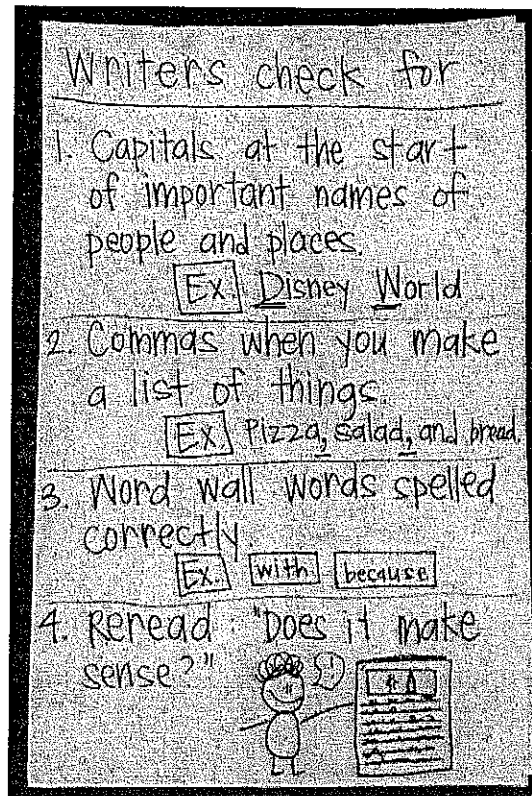 Writers check for
1. Capitals at the start
of important names of
people and places.
Ex. Disney World
2. Commas when you make
a list of things.
Ex. Pizza, salad, and bread
3. Word wall words spelled
correctly.
Ex. with because
4. Reread "Does it make
sense?"